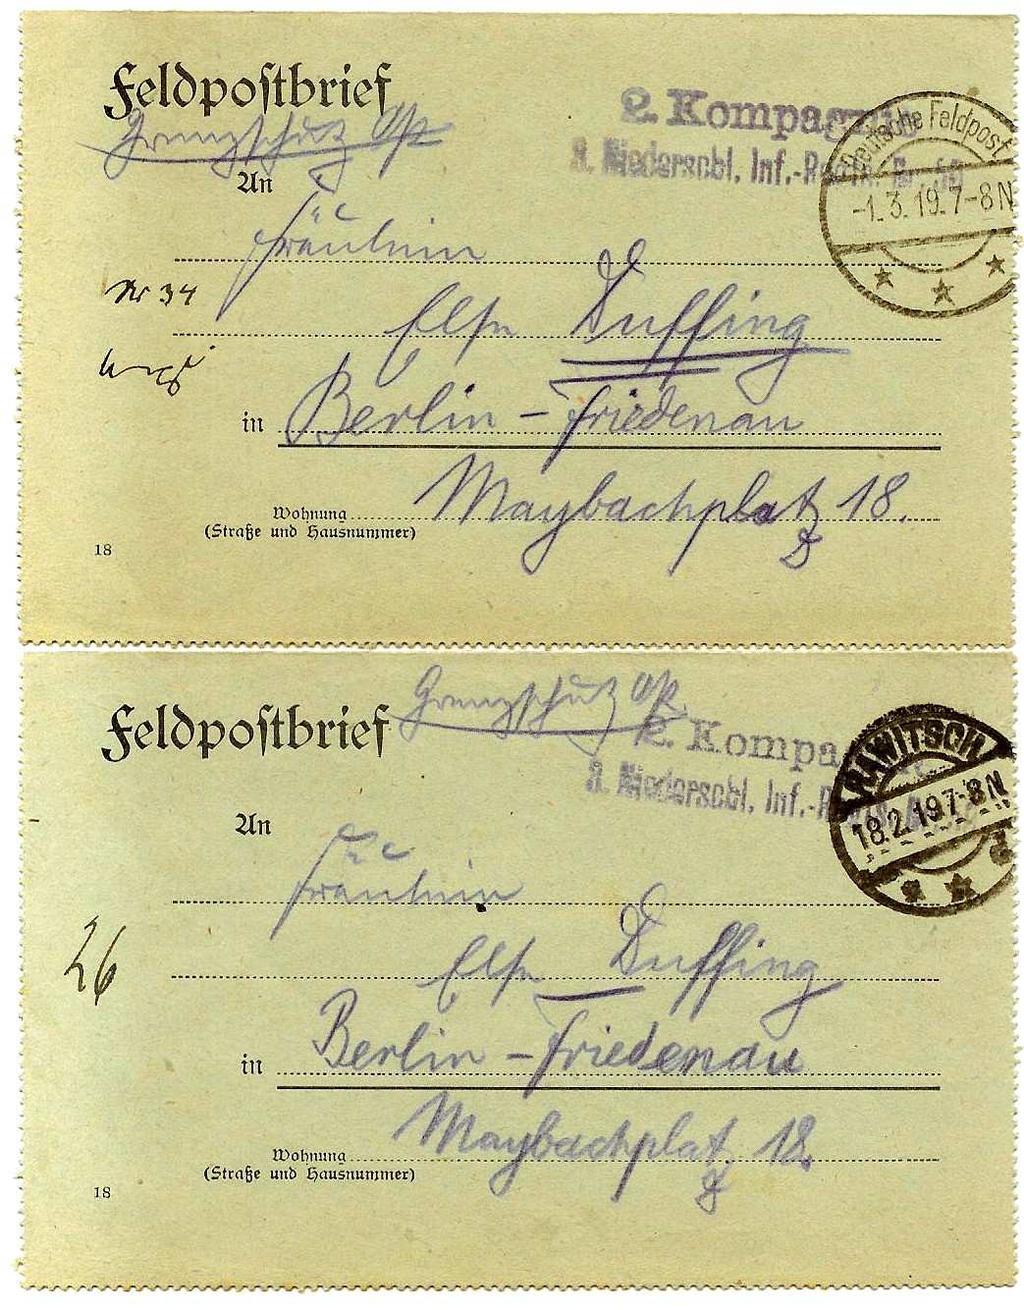 Feldpostbrief
Grenzschutz Ost
2. Kompagnie
3. Niederschl. Inf.-Regts. Nr. 50
Deutsche Feldpost
-1.3.19.7-8N
An
Fräulein
Nr 34
Else Duffing
in Berlin-Friedenau
Maybachplatz 18.
Wohnung
(Straße und Hausnummer)
18
Feldpostbrief
Grenzschutz Ost
2. Kompa
3. Niederschl. Inf.-Regts.
RAWITSCH
18.2.19.7-8N
An
Fräulein
26
Else Duffing
in Berlin-Friedenau
Maybachplatz 18.
Wohnung
(Straße und Hausnummer)
18